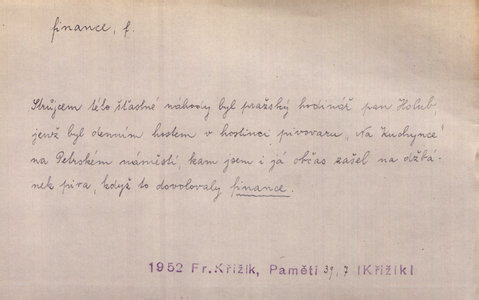 finance, f.
Strůjcem této šťastné náhody byl pražský hodinář pan Holub,
jenž byl denním hostem v hostinci pivovaru „Na Zuchynce"
na Petrském náměstí, kam jsem i já občas zašel na džbá-
nek piva, když to dovolovaly finance.
1952 Fr. Křižík, Paměti 39, 7 (Křižík)